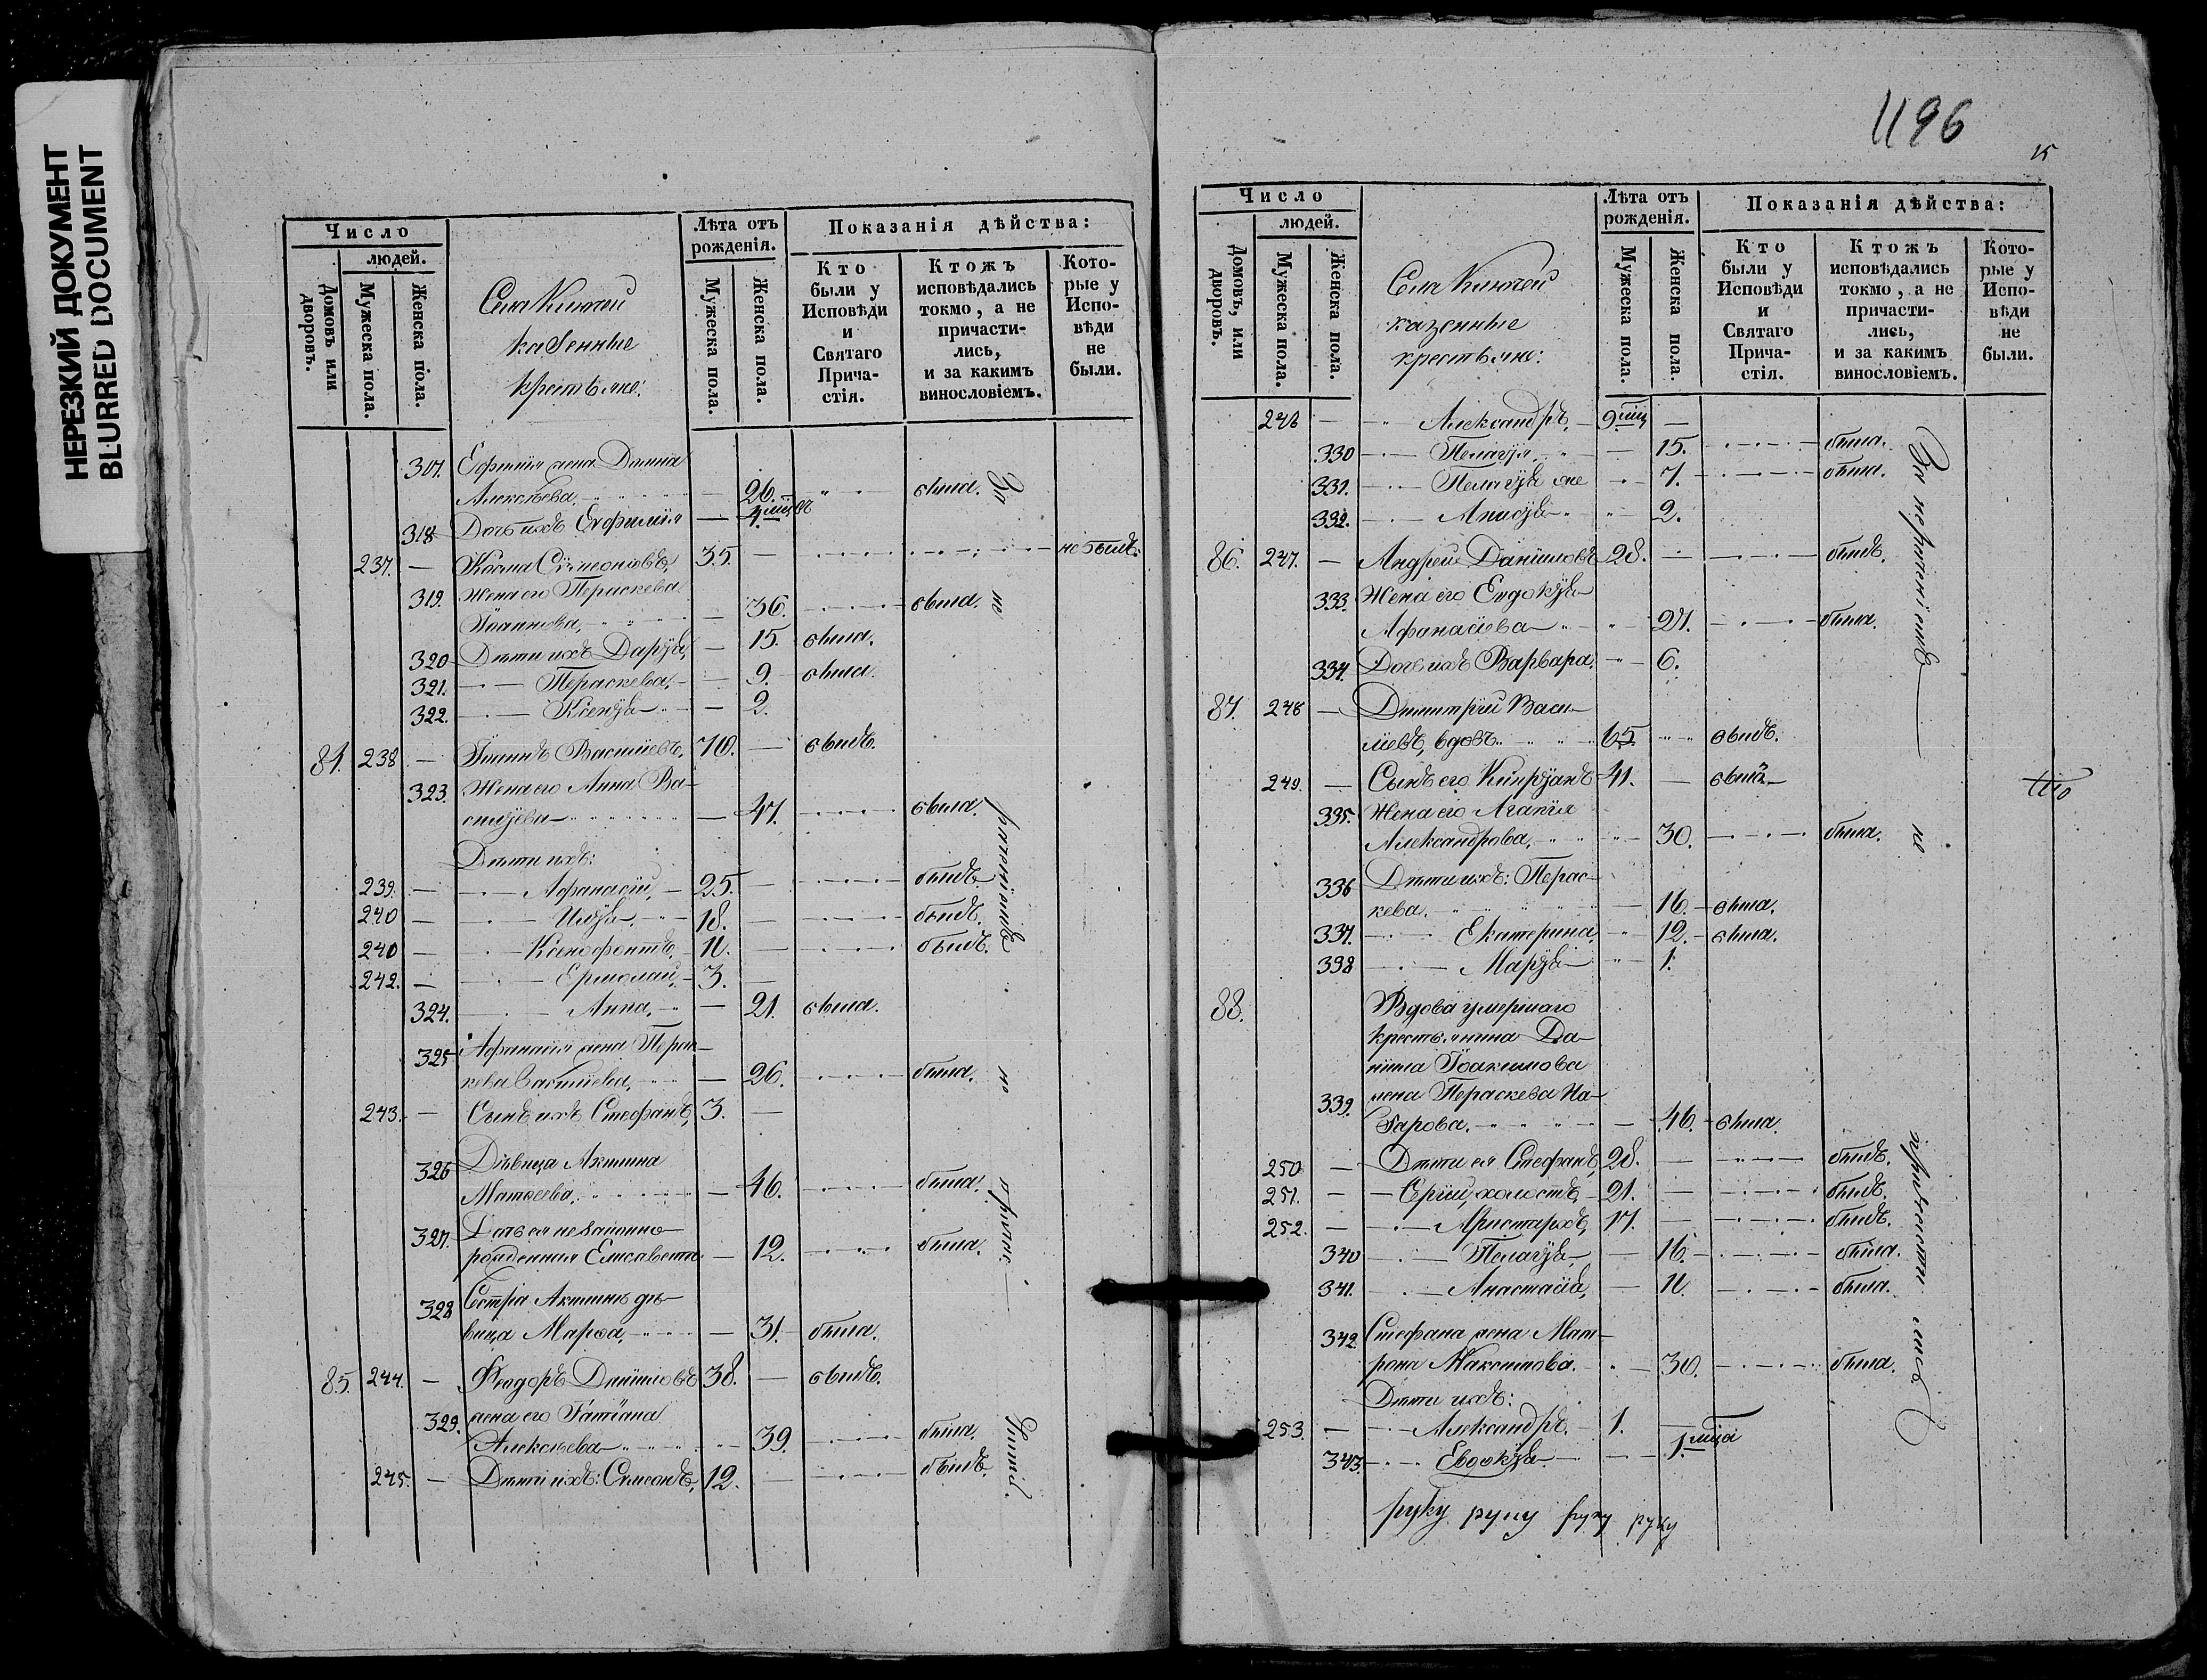 НЕРЕЗКИЙ ДОКУМЕНТ
BLURRED DOCUMENT
Число
людей.
Домовъ или дворовъ.
Мужеска пола.
Женска пола.
казенные
крестьяне:
Лѣта отъ рожденія.
Мужеска пола.
Женска пола.
Показанія дѣйства:
Кто были у Исповѣди и Святаго Прича-стія.
Ктожъ исповѣдались токмо, а не причасти-лись, и за какимъ винословіемъ.
Кото-рые у Испо-вѣди не были.
317. жена Домна
Алексѣева, — 26. была. За
318 Дочь ихъ Евфимія —
237. — Косма Сѵмеоновъ, 35. — не былъ.
319. Жена его Пераскева
Іоаннова, — 36. была. не
320 Дѣти ихъ Дарія, — 15. была.
321. — Пераскева, — 9. была.
322. — Ксенія — 2.
84. 238 — Іоаннъ Васильевъ, 70. — былъ.
323. Жена его Анна Ва-
сильева — 47. была.
Дѣти ихъ:
239. — Афанасій, — 25. — былъ.
240 — Илія — 18. — былъ.
240 — Ксенофонтъ, 11. — былъ.
242. — Ермолай, — 3. —
324. — Анна, — 21. была.
325 Афанасія жена Перас-
кева Васильева, — 26. была. но
243. — Сынъ ихъ Стефанъ, 3. —
326 Дѣвица Акилина
Матѳеева, — 46. была.
327. Дочь ея незаконно-
рожденная Елисавета — 12. была.
328 Сестра Акилины дѣ-
вица Марѳа, — 31. — была.
85. 244. — Ѳеодоръ Даниловъ 38. — былъ.
329. жена его Татіана
Алексѣева — 39. была.
245. — Дѣти ихъ: Симеонъ, 12. — былъ.
1196
15
Число
людей.
Домовъ, или дворовъ.
Мужеска пола.
Женска пола.
казенные
крестьяне:
Лѣта отъ рожденія.
Мужеска пола.
Женска пола.
Показанія дѣйства:
Кто были у Исповѣди и Святаго Прича-стія.
Ктожъ исповѣдались токмо, а не причасти-лись, и за какимъ винословіемъ.
Кото-рые у Испо-вѣди не были.
246 — Александръ, —
330 — Пелагія, — 15. — была.
331. — Пелагія же — 7. — была.
332. — Анисія — 2.
86. 247. — Андрей Даниловъ 28. — былъ.
333. Жена его Евдокія
Афанасіева — 27. — была.
334. Дочь ихъ Варвара, — 6.
87. 248 — Димитрій Васи-
ліевъ, вдовъ 65 былъ.
249. — Сынъ его Кипріанъ 41. — былъ
335. Жена его Агапія
Александрова, — 30. — была. не
336 Дѣти ихъ: Перас-
кева, — 16. — была.
337. — Екатерина, — 12. — была.
338 — Марія — 1.
88. Вдова умершаго
крестьянина Да-
ніила Іоакимова
339. жена Пераскева На-
зарова, — 46. — была.
250 — Дѣти ея Стефанъ, 28. — былъ.
251. — Сергій, холостъ, — 21. — былъ.
252. — Аристархъ, 17. — былъ.
340 — Пелагія, — 16. — была.
341. — Анастасія, — 11. — была.
342. Стефана жена Мат-
рона Максимова. — 30. — была.
Дѣти ихъ:
253. — Александръ — 1.
343. — Евдокія — 1. мца
руку руку руку руку